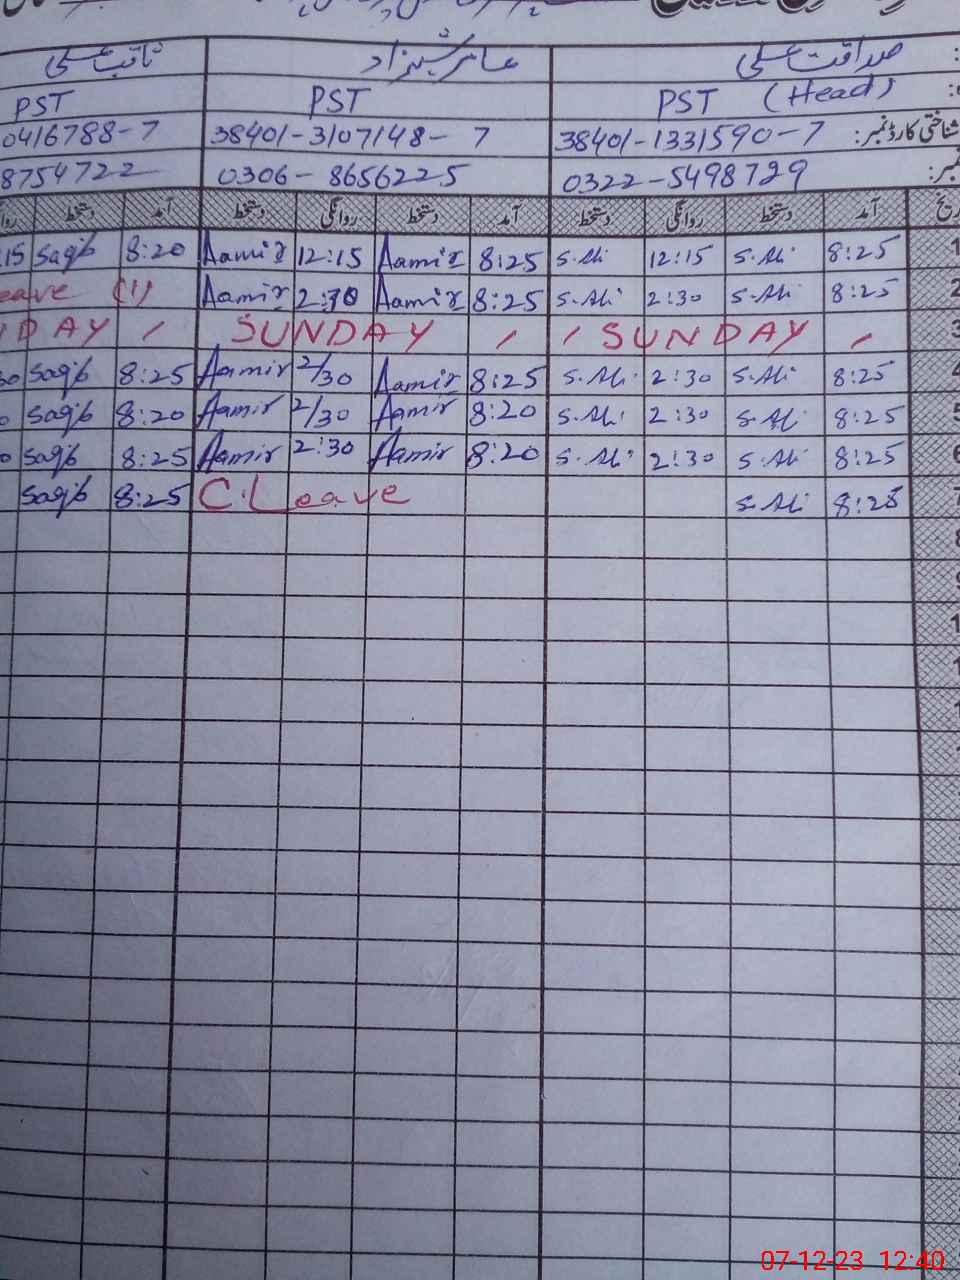 صداقت علی عامر شہزاد ثاقب علی
PST (Head) PST PST
شناختی کارڈ نمبر: 38401-1331590-7 38401-3107148-7 0416788-7
نمبر: 0322-5498729 0306-8656225 8754722
آمد دستخط روانگی دستخط آمد دستخط روانگی دستخط آمد دستخط
1 8:25 S.Ali 12:15 S.Ali 8:25 Aamir 12:15 Aamir 8:20 Saqib :15
2 8:25 S.Ali 2:30 S.Ali 8:25 Aamir 2:30 Aamir (1) eave
3 SUNDAY SUNDAY DAY
4 8:25 S.Ali 2:30 S.Ali 8:25 Aamir 2/30 Aamir 8:25 Saqib
5 8:25 S.Ali 2:30 S.Ali 8:20 Aamir 2/30 Aamir 8:20 Saqib
6 8:25 S.Ali 2:30 S.Ali 8:20 Aamir 2:30 Aamir 8:25 Saqib
7 8:25 S.Ali C.Leave 8:25 Saqib
8
9
07-12-23 12:40